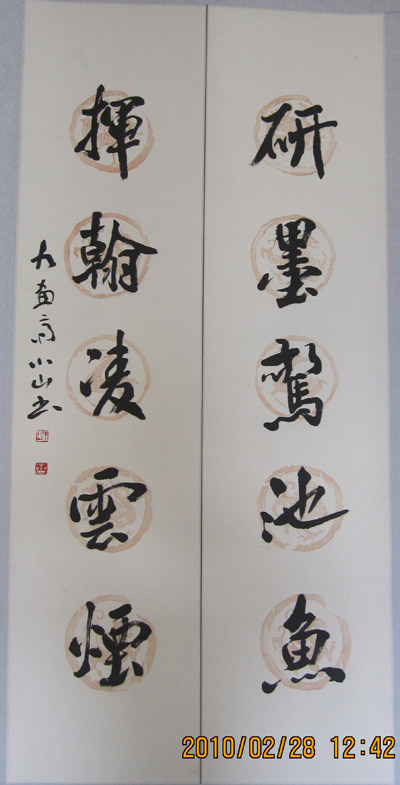 研墨驚池魚
揮翰凌雲煙
小山书
2010/02/28 12:42